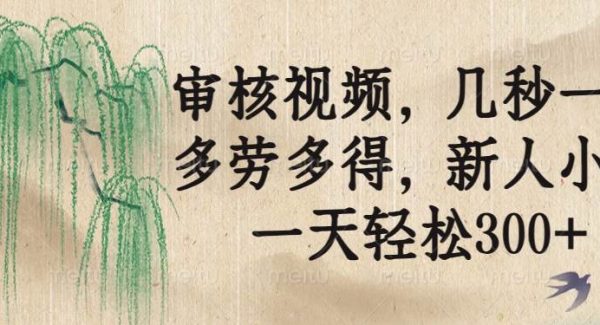 审核视频，几秒一
多劳多得，新人小
一天轻松300+
meitu